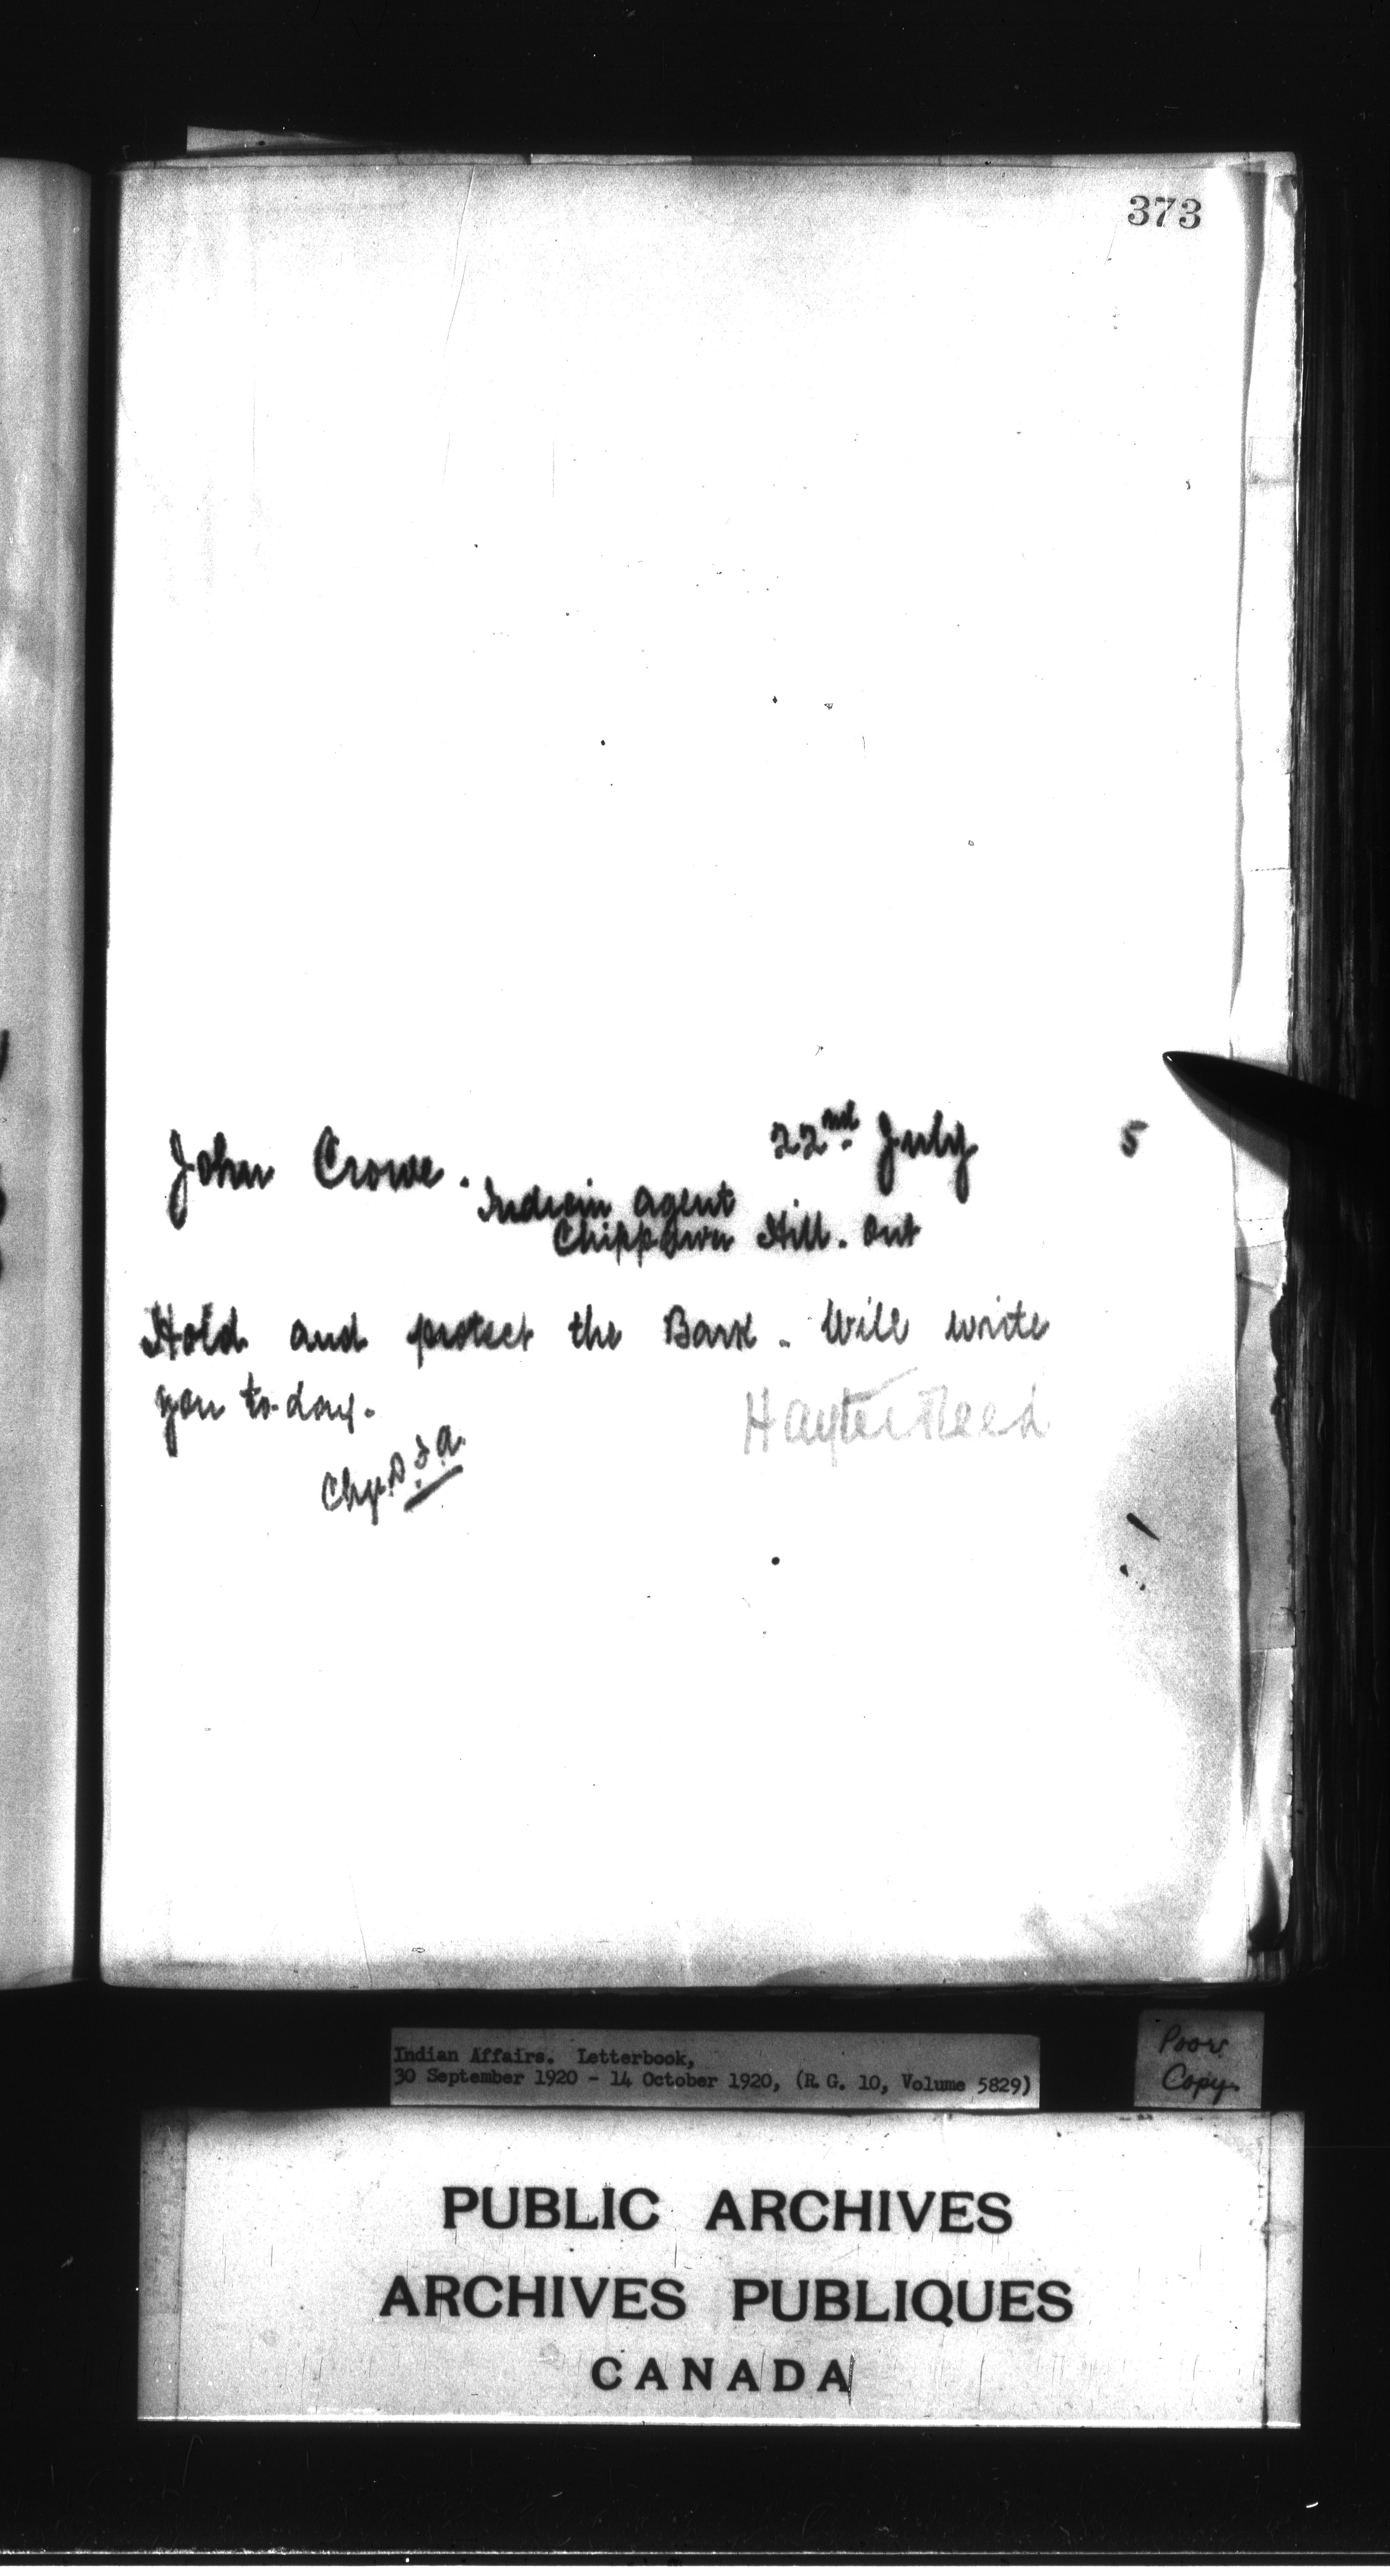 373
22nd. July 5
John Crowe.
Indian Agent
Chippawa Hill. Ont
Hold and protect the Bark. Will write
you to-day.
Hayter Reed
Chg. D. I. A.
Indian Affairs. Letterbook,
30 September 1920 - 14 October 1920, (R.G. 10, Volume 5829)
Poor
Copy
PUBLIC ARCHIVES
ARCHIVES PUBLIQUES
CANADA